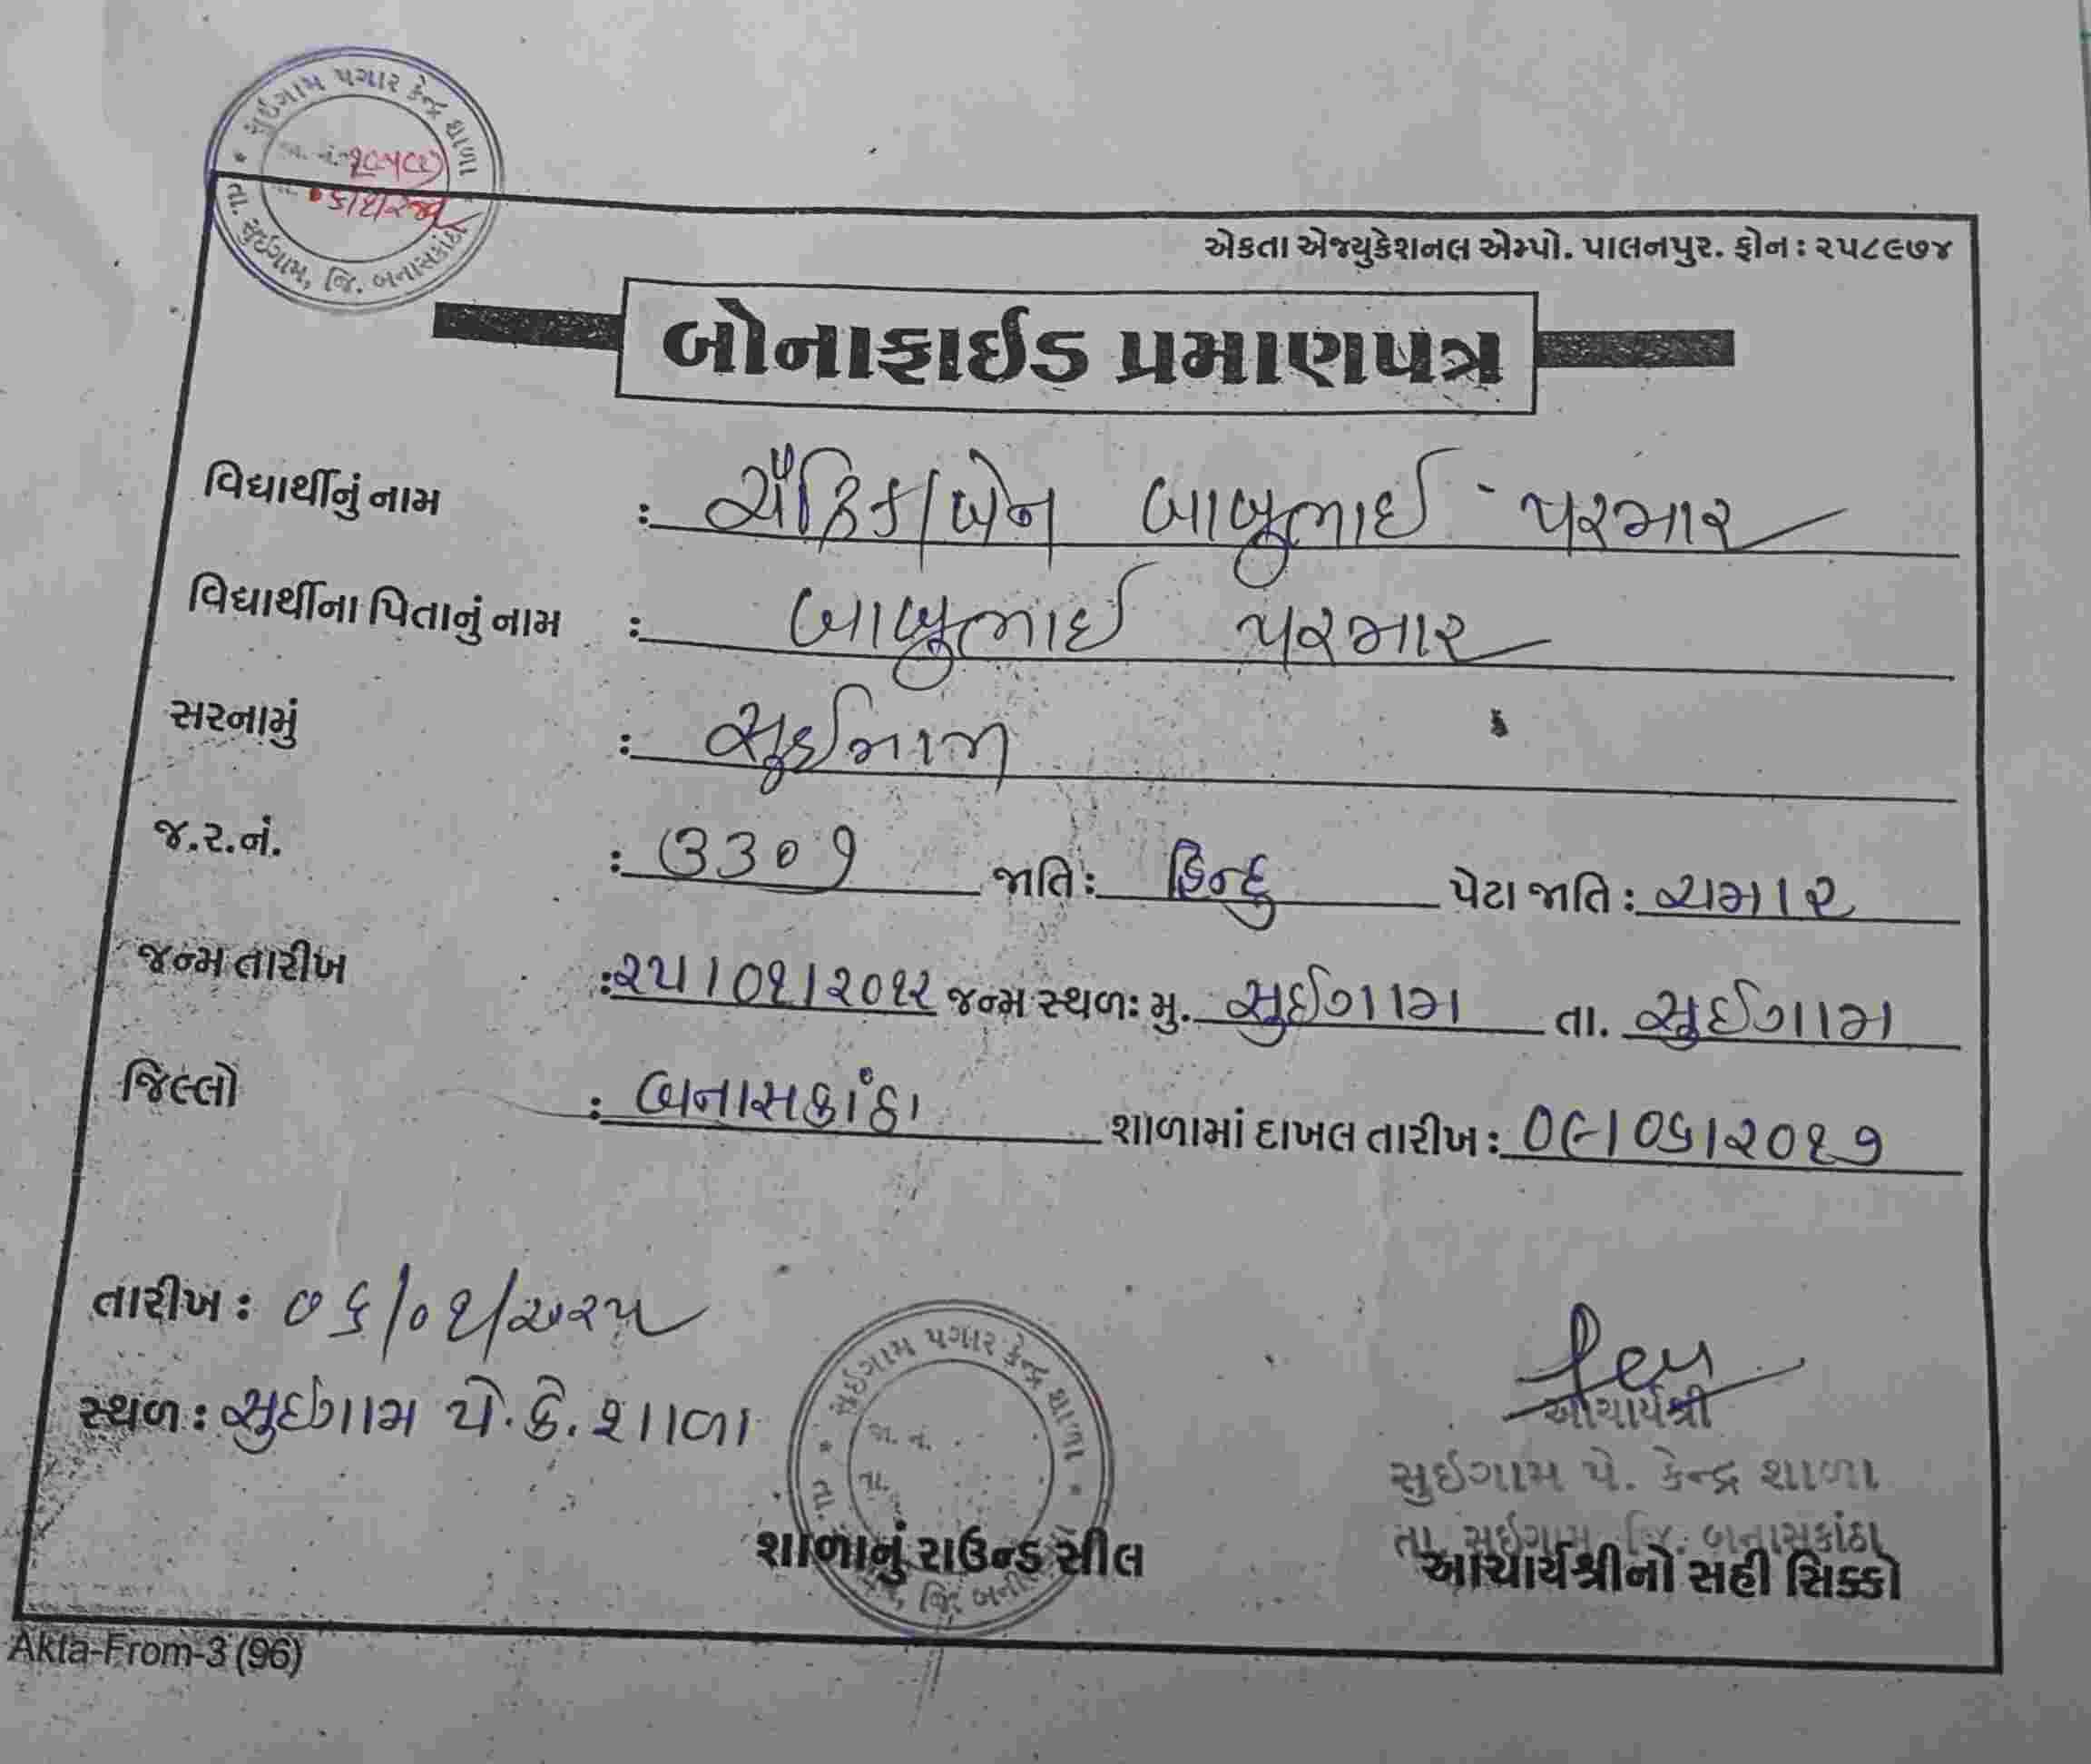 સુઇગામ પગાર કેન્દ્ર શાળા
જા. નં.
તા. સુઇગામ, જિ. બનાસકાંઠા
એકતા એજ્યુકેશનલ એમ્પો. પાલનપુર. ફોન : ૨૫૮૯૭૪
બોનાફાઈડ પ્રમાણપત્ર
વિદ્યાર્થીનું નામ : બાબુભાઈ - પરમાર
વિદ્યાર્થીના પિતાનું નામ : બાબુભાઈ પરમાર
સરનામું : સુઈગામ
જ.ર.નં. : ૩૩૦૧ જાતિ : હિન્દુ પેટા જાતિ : ચમાર
જન્મ તારીખ : ૨૫/૦૧/૨૦૧૨ જન્મ સ્થળ: મુ. સુઈગામ તા. સુઈગામ
જિલ્લો : બનાસકાંઠા શાળામાં દાખલ તારીખ : ૦૯/૦૬/૨૦૧૭
તારીખ : ૦૬/૦૧/૨૦૨૫
સ્થળ : સુઇગામ પે. કે. શાળા
સુઇગામ પગાર કેન્દ્ર શાળા
જા. નં.
તા.
શાળાનું રાઉન્ડ સીલ
આચાર્યશ્રી
સુઇગામ પે. કેન્દ્ર શાળા
તા. સુઇગામ જિ. બનાસકાંઠા
આચાર્યશ્રીનો સહી સિક્કો
Akta-From-3 (96)